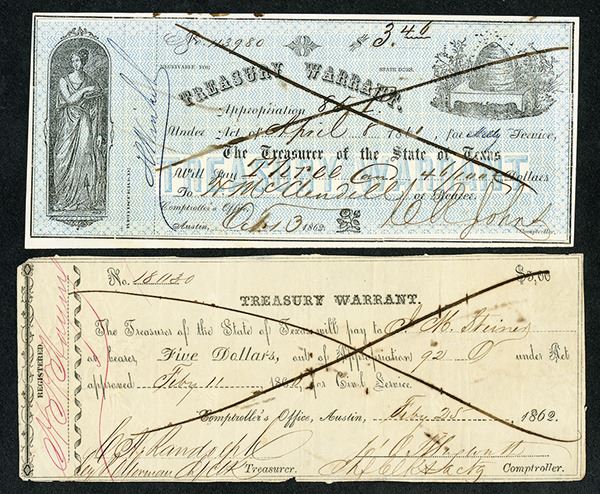 No. 113980 $3.46
RECEIVABLE FOR STATE DUES.
TREASURY WARRANT.
Appropriation
Under Act of April 8 1861, for Service,
The Treasurer of the State of Texas
TREASURY WARRANT
Will Pay Three and 46/100 Dollars
To or Bearer.
Comptroller's Office
Austin, 13 1862 C R Johns
Comptroller.
REGISTERED.
No. 18050 $5,00
TREASURY WARRANT.
The Treasurer of the State of Texas will pay to J. M. Steiner
or bearer, Five Dollars, out of Appropriation 92 under Act
approved Feby 11 186 , for Civil Service.
Comptroller's Office, Austin, Feby 25 1862.
C H Randolph
Treasurer. Comptroller.
REGISTERED.